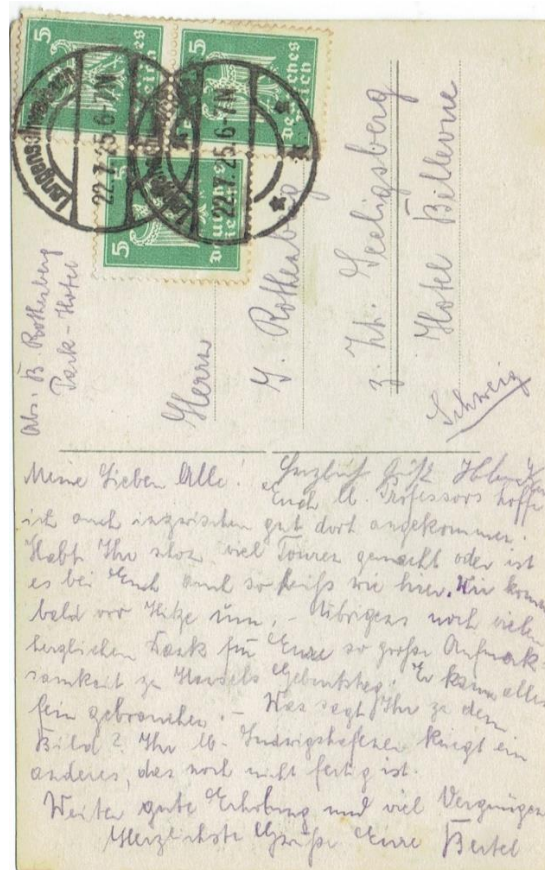 5
5
5
Deutsches Reich
Deutsches Reich
Deutsches Reich
Langenschwalbach
22.7.25.6-7N
Langenschwalbach
22.7.25.6-7N
Abs: B. Rothenberg
Park-Hotel
Herrn
J. Rothenberg
z. Zt. Seeligsberg
Hotel Bellevue
Schweiz
Meine Lieben Alle!
Euch u. Professors hoffe
ich auch inzwischen gut dort angekommen.
Habt Ihr schon viel Touren gemacht oder ist
es bei Euch auch so heiß wie hier. Wir kommen
bald vor Hitze um. - Übrigens noch vielen
herzlichen Dank für Eure so große Aufmerk-
samkeit zu Geburtstag! Er kann alles
fein gebrauchen. - Was sagt Ihr zu dem
Bild? Ihr u. Ludwigshafener kriegt ein
anderes, das noch nicht fertig ist.
Weiter gute Erholung und viel Vergnügen
Herzlichste Grüße Eure Bertel